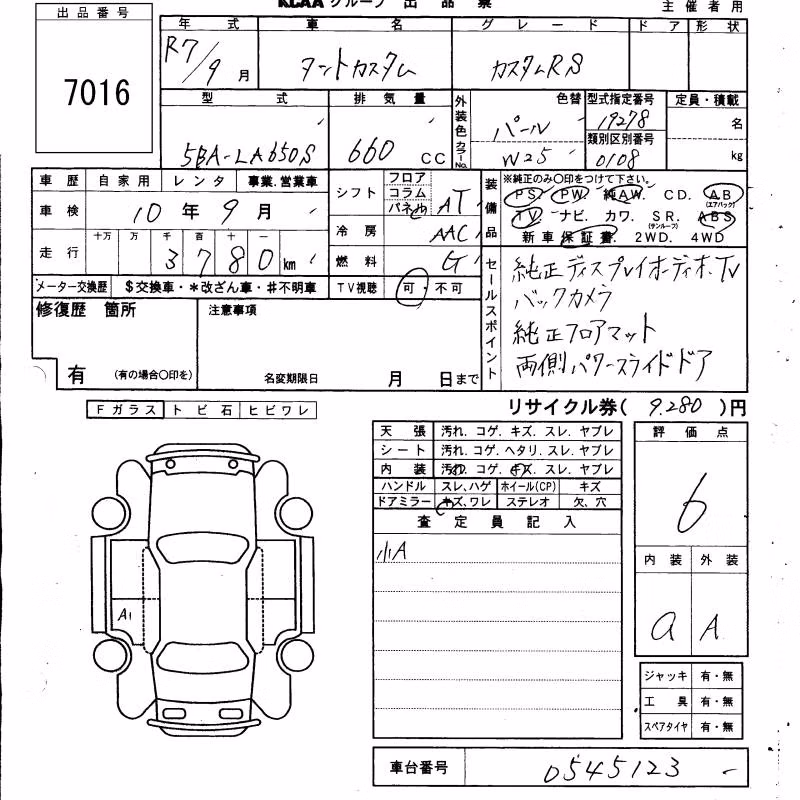 KCAA グループ 出 品 票
主 催 者 用
出品番号
7016
年 式 車 名 グ レ ー ド ド ア 形 状
R7/9 月 タントカスタム カスタムRS
型 式 排 気 量 外装色 カラーNo. 色替 型式指定番号 定員・積載
パール 19278 名
類別区別番号
5BA-LA650S 660 CC W25 0108 kg
車 歴 自家用 レンタ 事業.営業車 シフト フロア コラム パネル AT 装備品 ※純正のみ〇印をつけて下さい。
PS. PW. 純AW. CD. AB (エアバック)
車 検 10 年 9 月 TV. ナビ. カワ. SR. (サンルーフ) ABS
冷 房 AAC 新車保証書. 2WD. 4WD
走 行 十万 万 千 百 十 一
3 7 8 0 km 燃 料 G セールスポイント 純正ディスプレイオーディオ.TV
メーター交換歴 $交換車・*改ざん車・#不明車 TV視聴 可・不可 バックカメラ
修復歴 箇所 注意事項 純正フロアマット
両側パワースライドドア
有 (有の場合〇印を) 名変期限日 月 日まで
リサイクル券( 9.280 )円
Fガラス トビ石 ヒビワレ
天 張 汚れ. コゲ. キズ. スレ. ヤブレ 評 価 点
シート 汚れ. コゲ. ヘタリ. スレ. ヤブレ
内 装 汚れ. コゲ. キズ. スレ. ヤブレ 6
ハンドル スレ、ハゲ ホイール(CP) キズ
ドアミラー キズ、ワレ ステレオ 欠、穴
査 定 員 記 入
小A
内 装 外 装
A1
a A
ジャッキ 有・無
工 具 有・無
スペアタイヤ 有・無
車台番号 0545123